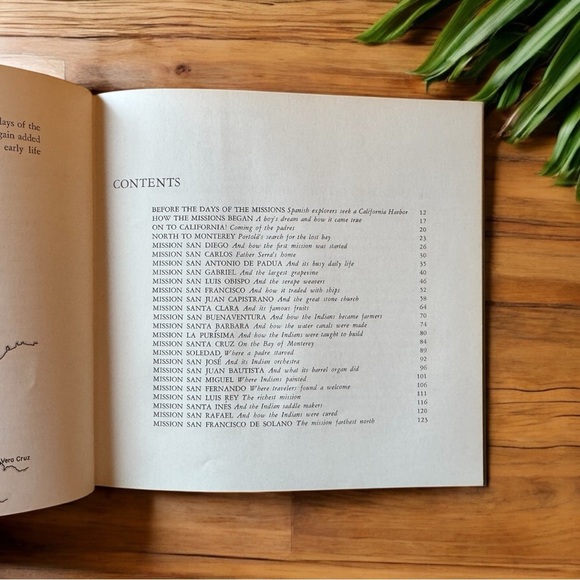 days of the
gain added
early life
Vera Cruz
CONTENTS
BEFORE THE DAYS OF THE MISSIONS Spanish explorers seek a California Harbor 12
HOW THE MISSIONS BEGAN A boy's dream and how it came true 17
ON TO CALIFORNIA! Coming of the padres 20
NORTH TO MONTEREY Portolá's search for the lost bay 23
MISSION SAN DIEGO And how the first mission was started 26
MISSION SAN CARLOS Father Serra's home 30
MISSION SAN ANTONIO DE PADUA And its busy daily life 35
MISSION SAN GABRIEL And the largest grapevine 40
MISSION SAN LUIS OBISPO And the serape weavers 46
MISSION SAN FRANCISCO And how it traded with ships 52
MISSION SAN JUAN CAPISTRANO And the great stone church 58
MISSION SANTA CLARA And its famous fruits 64
MISSION SAN BUENAVENTURA And how the Indians became farmers 70
MISSION SANTA BARBARA And how the water canals were made 74
MISSION LA PURÍSIMA And how the Indians were taught to build 80
MISSION SANTA CRUZ On the Bay of Monterey 84
MISSION SOLEDAD Where a padre starved 89
MISSION SAN JOSÉ And its Indian orchestra 92
MISSION SAN JUAN BAUTISTA And what its barrel organ did 96
MISSION SAN MIGUEL Where Indians painted 101
MISSION SAN FERNANDO Where travelers found a welcome 106
MISSION SAN LUIS REY The richest mission 111
MISSION SANTA INES And the Indian saddle makers 116
MISSION SAN RAFAEL And how the Indians were cured 120
MISSION SAN FRANCISCO DE SOLANO The mission farthest north 123